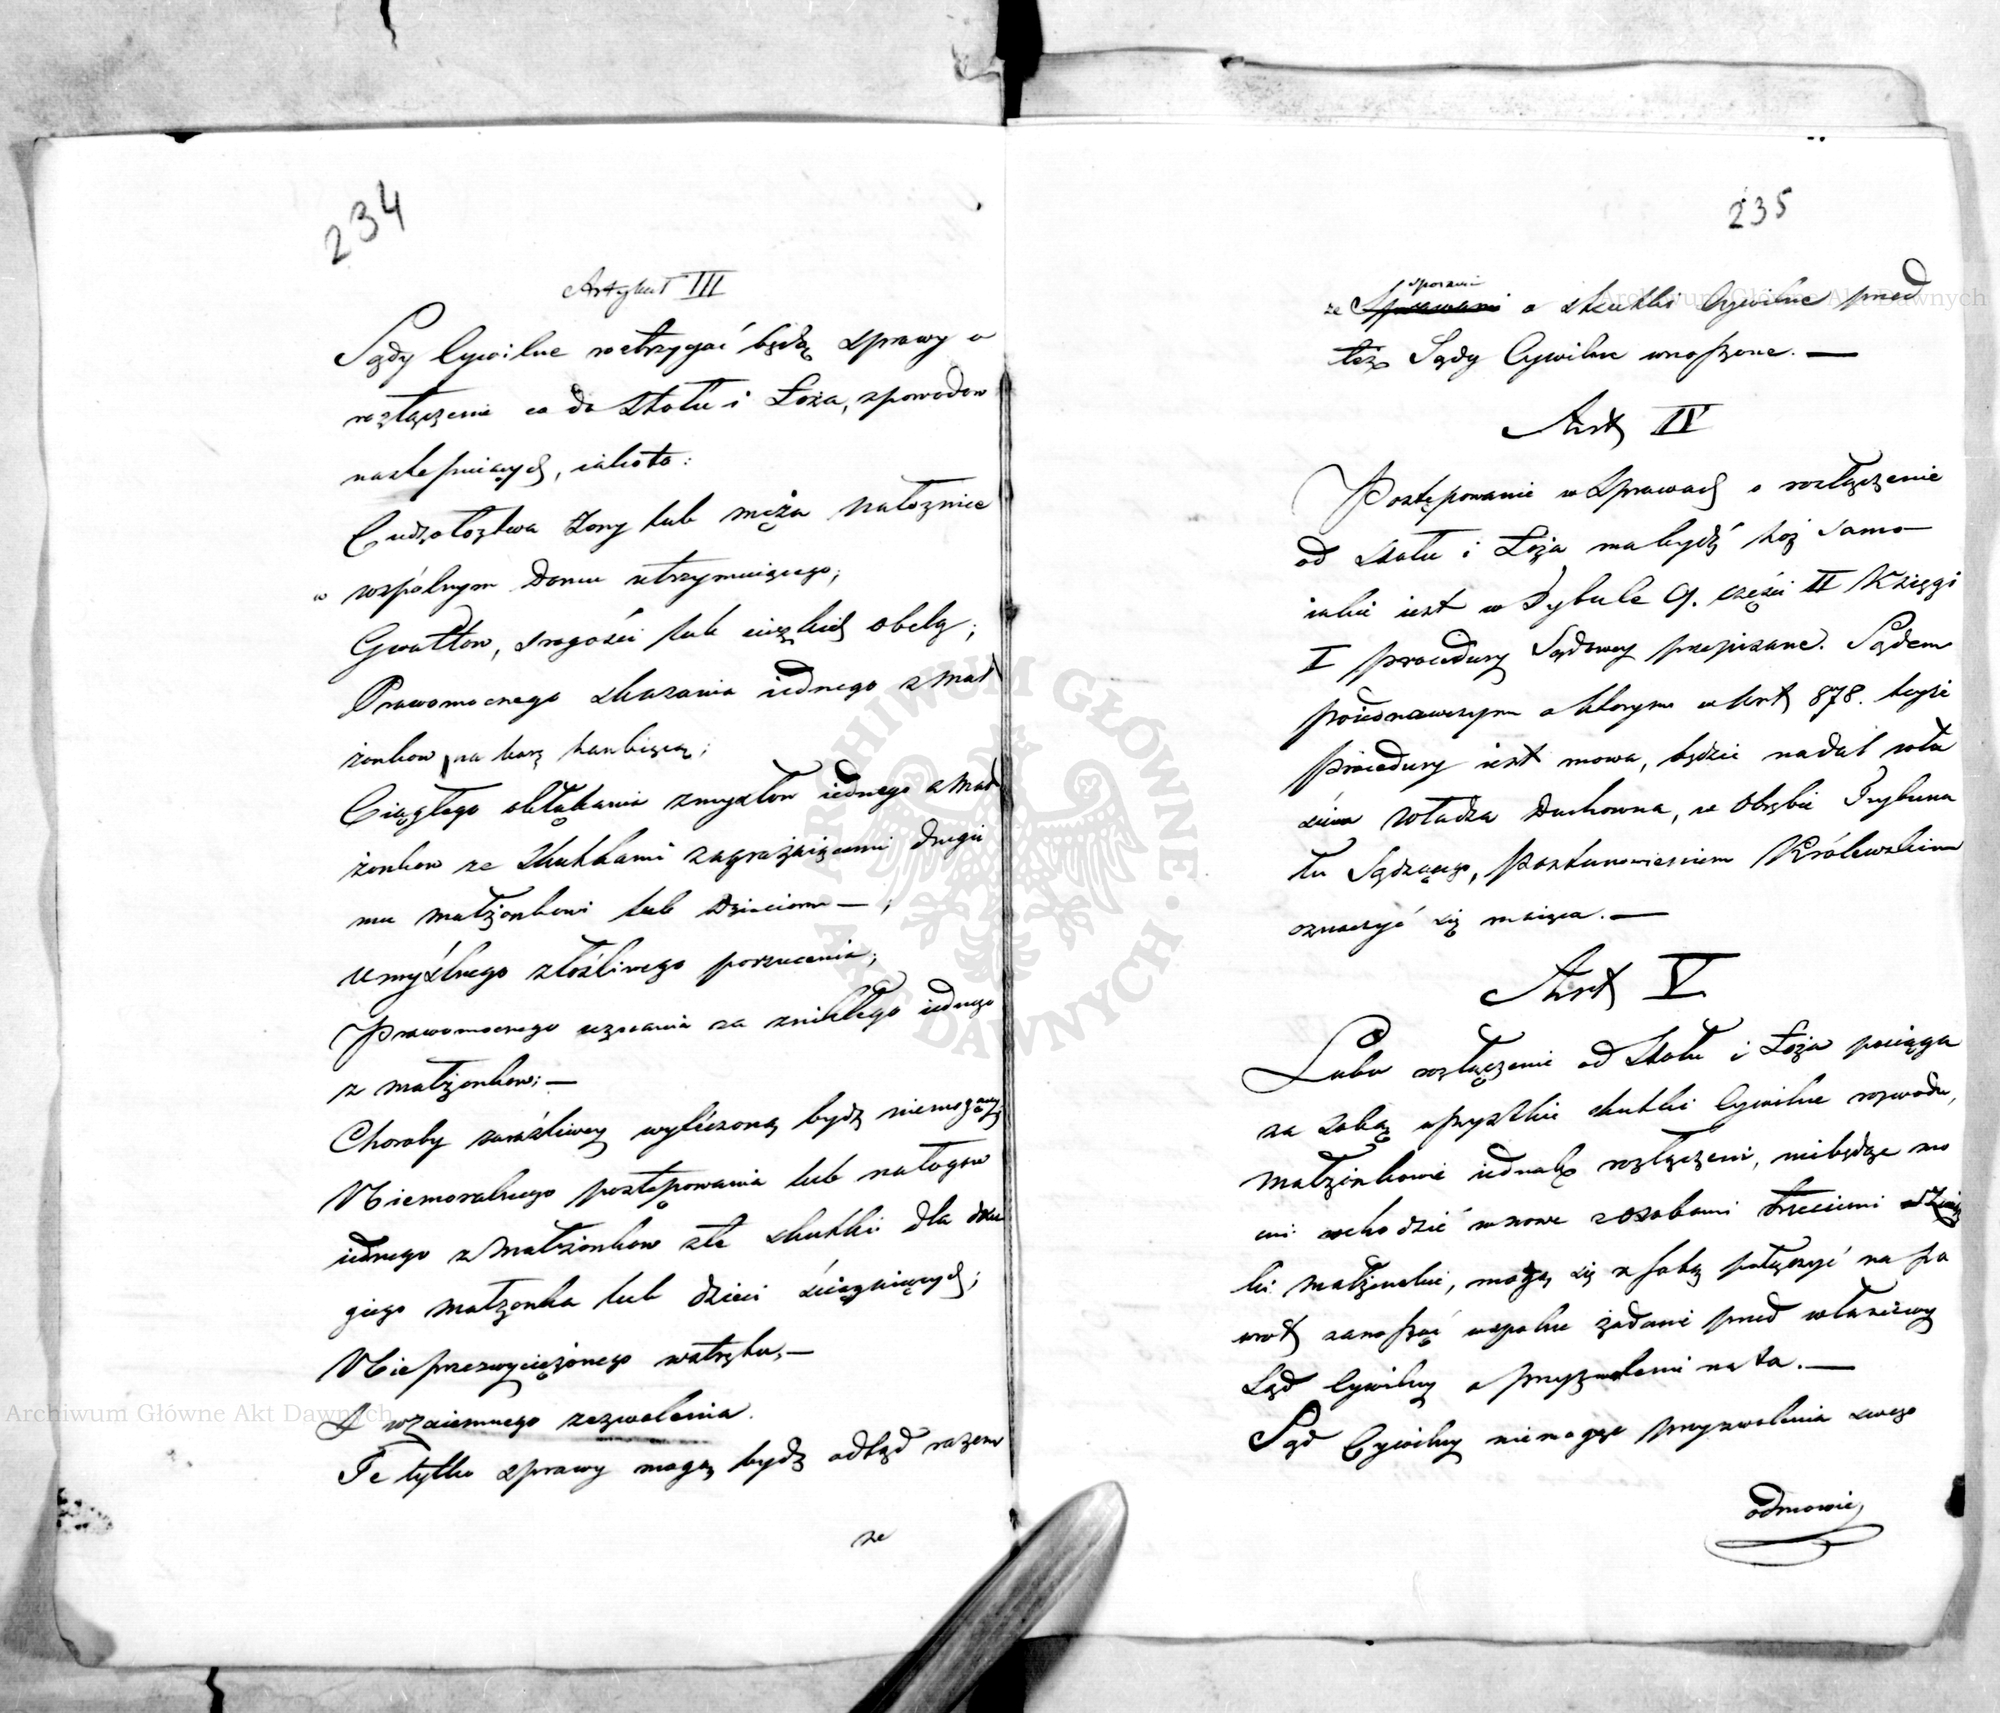 234
Artykuł III
Sądy Cywilne roztrzygać będą sprawy o
rozłączenie co do Stołu i Łoża, z powodow
nastempuiących, iakoto:
Cudzołoztwa Żony lub męża nałoznice
w wspólnym Domu utrzymuiącego;
Gwałtow, srogości lub cięzkich obelg;
Prawomocnego skazania iednego z Mał
żonkow na karę hanbiącą;
Ciągłego obłąkania zmysłow iednego z Mał
żonkow ze skutkami zagrażaiącemi drugie
mu małżonkowi lub Dzieciom — ;
Umyślnego złośliwego porzucenia;
Prawomocnego uznania za znikłego iednego
z małżonkow; —
Choroby zaraźliwey wyleczoną bydź niemogącey
Niemoralnego postępowania lub nałogow
iednego z Małżonkow złe skutki dla dru
giego małżonka lub dzieci sciągaiących;
Nieprzezwyciężonego wstrętu; —
I wzaiemnego zezwolenia.
Te tylko sprawy mogą bydź odtąd razem
ze
235
sporami
ze Sprawami o skutki Cywilne przed
też Sądy Cywilne wnoszone. —
Art IV
Postępowanie w Sprawach o rozłączenie
od Stołu i Łoża ma bydź toż samo
iakie iest w Tytule 9. części II Księgi
I procedury Sądowey przepisane. Sądem
poiednawczym o ktorym w Art 878. teyże
procedury iest mowa, będzie nadal wła
ściwa Władza Duchowna, w Obrębie Trybuna
łu Sądzącego, Postanowieniem Królewskiem
oznaczyć się maiąca. —
Art V
Lubo rozłączenie od Stołu i Łoża pociąga
za sobą wszystkie skutki Cywilne rozwodu,
Małżonkowie iednak rozłączeni, niebędąc mo
cni wchodzić w nowe z osobami trzeciemi związ
ki małżeńskie, mogą się z sobą połączyć na po
wrot zanosząc wspolne żądanie przed właściwy
Sąd Cywilny o przyzwolenie na to. —
Sąd Cywilny niemogąc przyzwolenia swego
odmowić,
Archiwum Główne Akt Dawnych
Archiwum Główne Akt Dawnych
ARCHIWUM GŁÓWNE AKT DAWNYCH